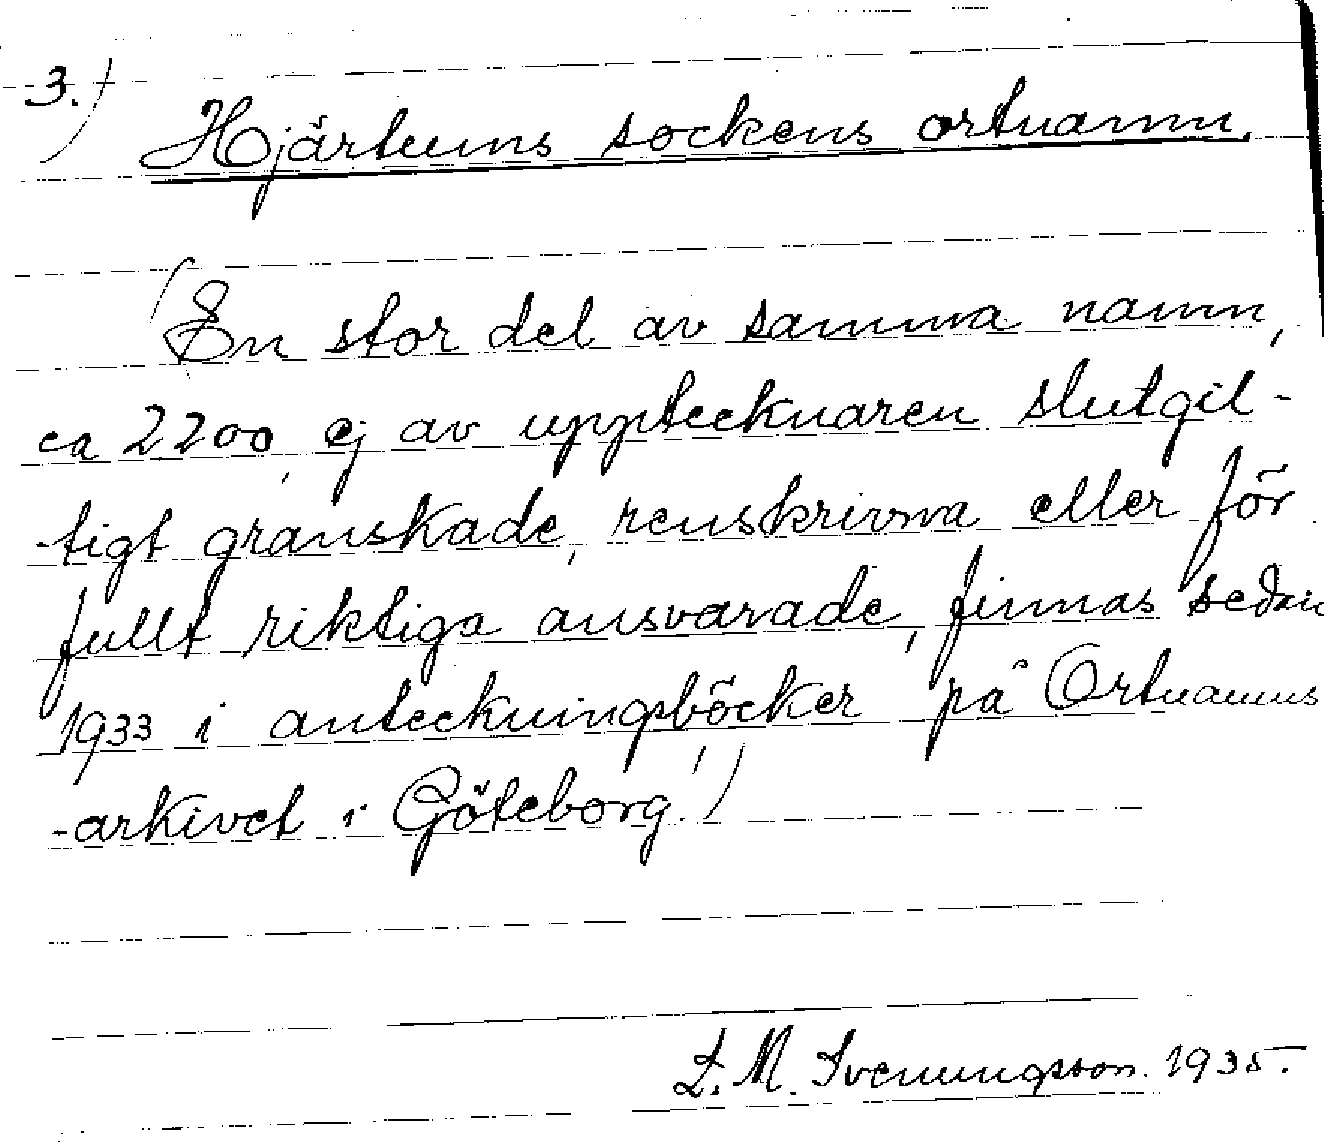 3.)
Hjärtums sockens ortnamn.
(En stor del av samma namn,
ca 2200, ej av upptecknaren slutgil-
-tigt granskade, renskrivna eller för
fullt riktiga ansvarade, finnas sedan
1933 i anteckningsböcker på Ortnamns
-arkivet i Göteborg!)
L. M. Svenungsson. 1935.